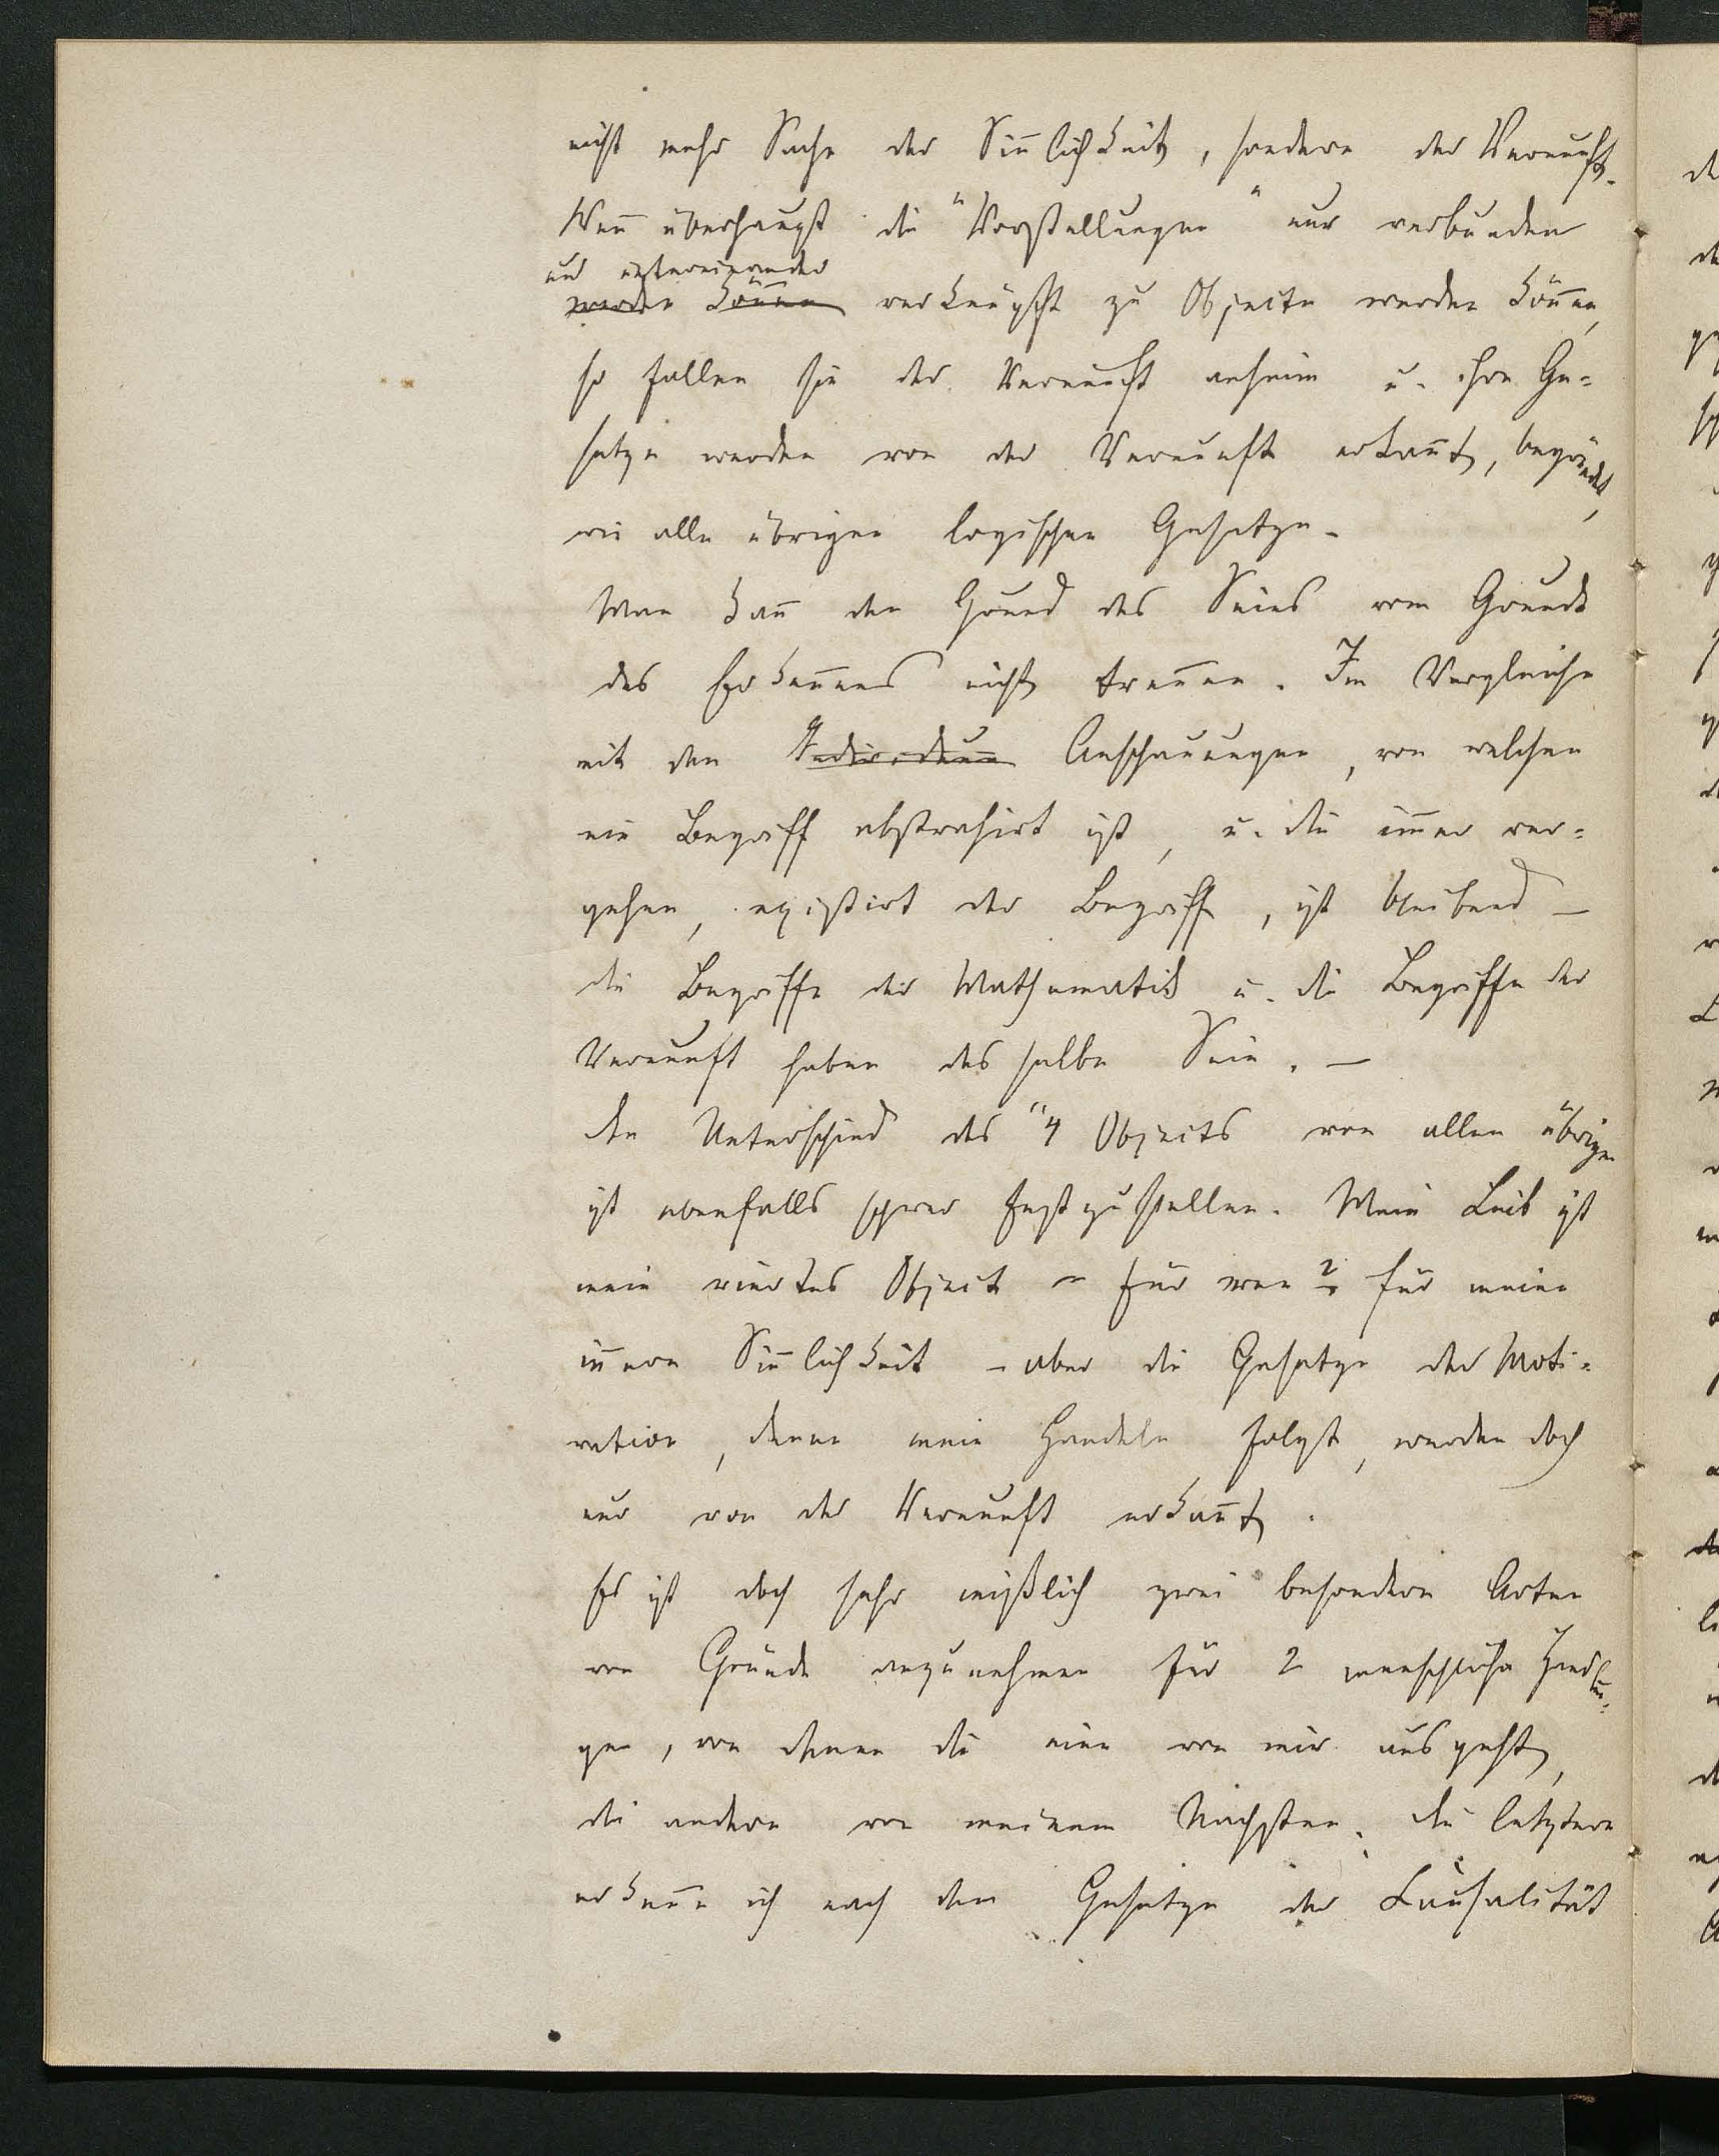 nicht mehr Sache der Siñlichkeit, sondern der Vernunft.
Weñ überhaupt die "Vorstellungen" nur verbunden
und untereinander
werden köñen verknüpft zu Objecten werden köñen,
so fallen sie der Vernunft anheim u. ihre Ge=
setze werden von der Vernunft erkañt, begründet,
wie alle übrigen logischen Gesetze.
Man kañ den Grund des Seins vom Grunde
des Erkeñens nicht treñen. Im Vergleiche
mit den Individuen Anschauungen, von welchen
ein Begriff abstrahirt ist, u. die im̃er ver=
gehen, existirt der Begriff, ist bleibend —
die Begriffe der Mathematik u. die Begriffe der
Vernunft haben dasselbe Sein. —
Den Unterschied des "4 Objects von allen übrigen
ist ebenfalls schwer festzustellen. Mein Leib ist
mein viertes Object – für wen? für meine
iñere Siñlichkeit – aber die Gesetze der Moti=
vation, denen mein Handeln folgt, werden doch
nur von der Vernunft erkañt.
Es ist doch sehr mißlich zwei besondere Arten
von Gründe anzunehmen für 2 menschliche Handlun=
gen, von denen die eine von mir ausgeht,
die andere von meinem Nächsten. Die letztere
erkeñe ich nach dem Gesetze der Causalität